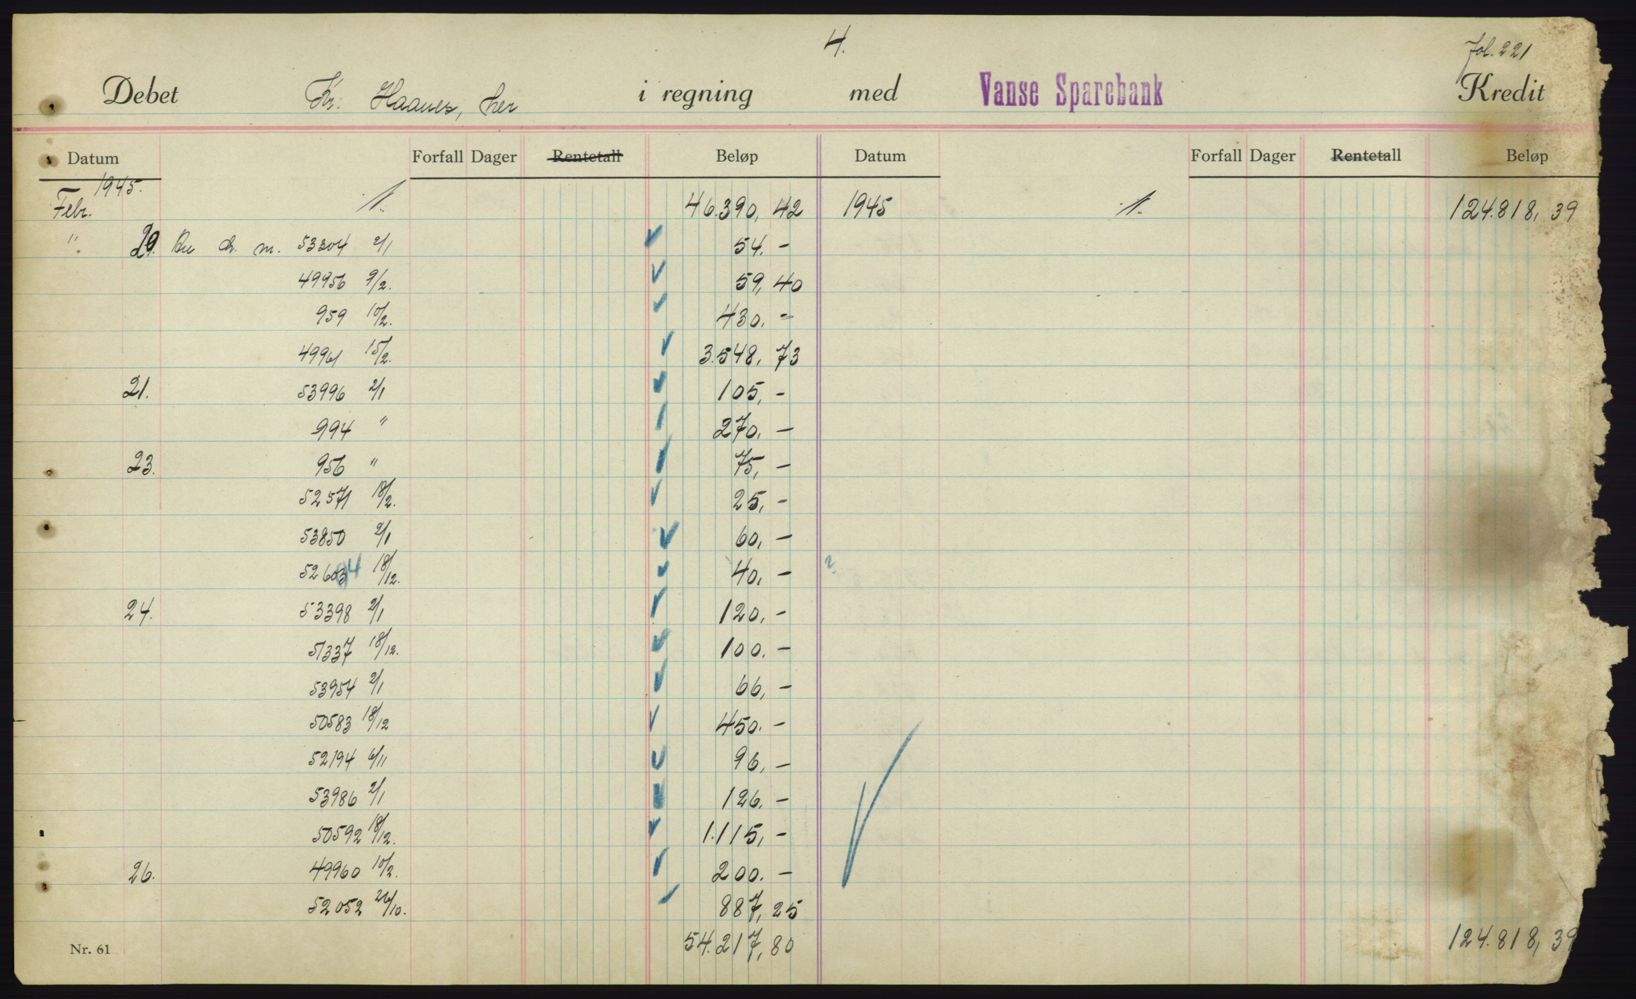 4.
Fol. 221
Debet Kr: Haanes, her i regning med Vanse Sparebank Kredit
Datum Forfall Dager Rentetall Beløp Datum Forfall Dager Rentetall Beløp
1945.
Febr. 1. 46.390,42 1945 1. 124.818,39
" 20. m. 53304 2/1 54.-
49956 9/2. 59,40
959 10/2. 430.-
49961 15/2. 3.548,73
21. 53996 2/1 105,-
994 " 270,-
23. 956 " 75,-
52571 18/2. 25,-
53850 2/1 60,-
18/12. 40,-
24. 53398 2/1 120,-
51337 18/12. 100.-
53954 2/1 66,-
50583 18/12 450.-
52194 6/11 96,-
53986 2/1 126.-
50592 18/12. 1.115,-
26. 49960 10/2. 200.-
52052 26/10. 887,25
Nr. 61 54.217,80 124.818,39